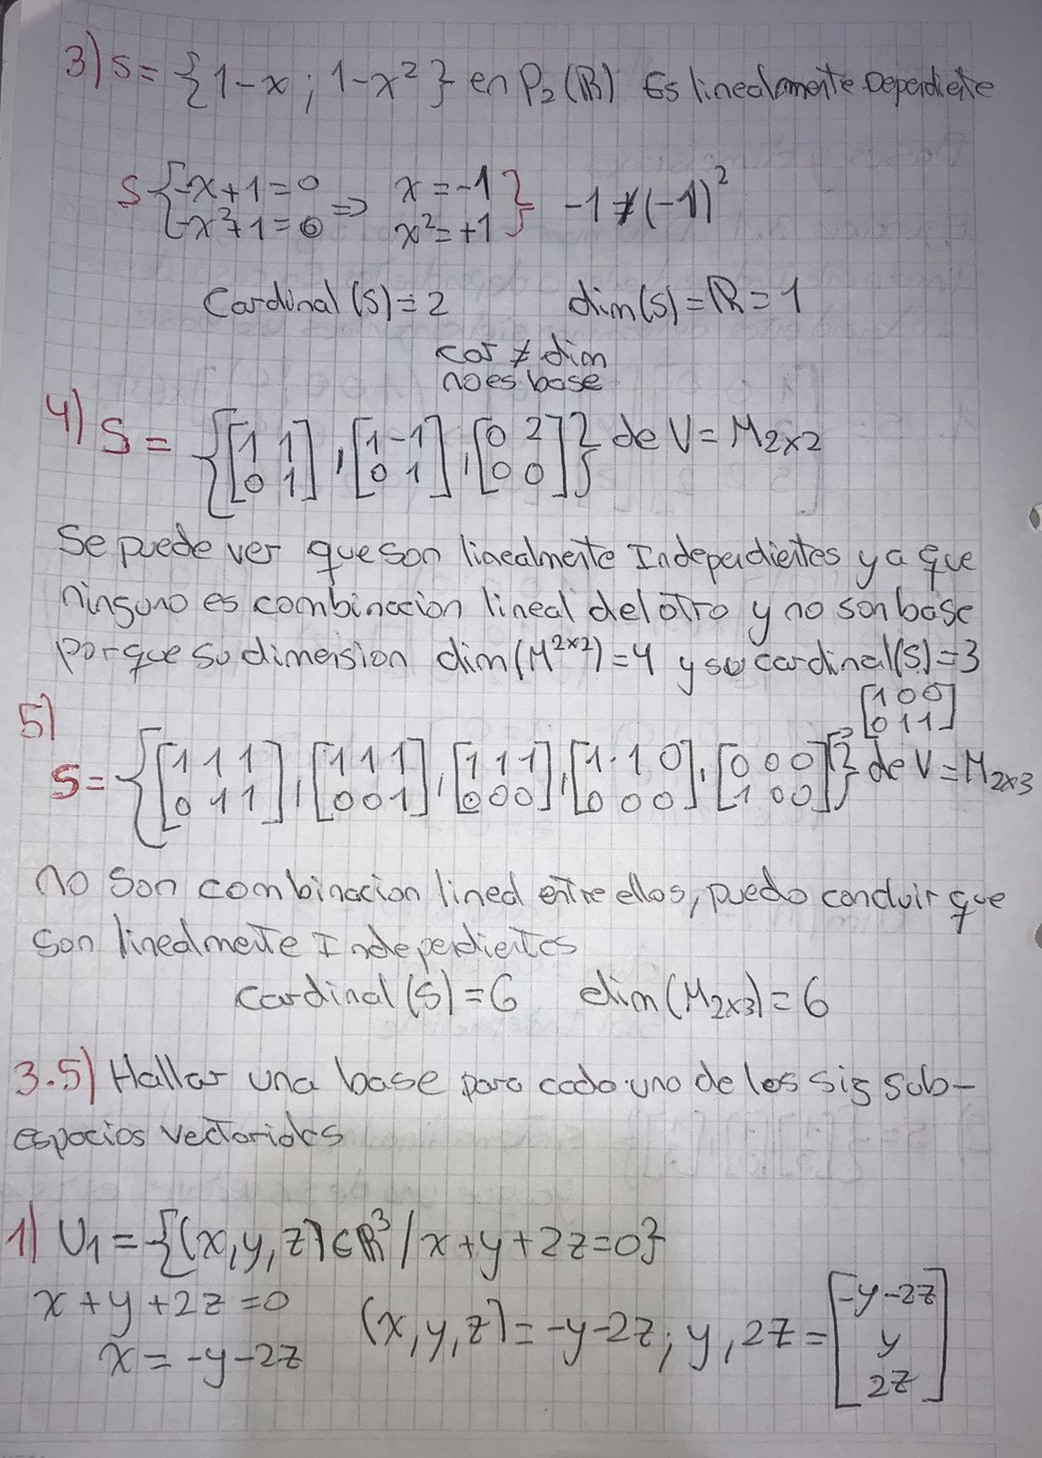 3) S = { 1-x ; 1-x² } en P₂(R) Es linealmente Dependiente
S { -x+1=0 ⇒ x = -1 } -1 ≠ (-1)²
-x²+1=0 x² = +1
Cardinal (S) = 2 dim(s) = R = 1
car ≠ dim
no es base
4) S = { [1 1] , [1 -1] , [0 2] } de V = M₂ₓ₂
[0 1] [0 1] [0 0]
Se puede ver que son linealmente Independientes ya que
ninguno es combinacion lineal del otro y no son base
porque su dimension dim(M²ˣ²) = 4 y su cardinal(S) = 3
5) [1 0 0]
[0 1 1]
S = { [1 1 1] , [1 1 1] , [1 1 1] , [1 1 0] , [0 0 0] } de V = M₂ₓ₃
[0 1 1] [0 0 1] [0 0 0] [0 0 0] [1 0 0]
no son combinacion lineal entre ellos, puedo concluir que
son linealmente Independientes
cardinal (S) = 6 dim(M₂ₓ₃) = 6
3.5) Hallar una base para cada uno de los sig sub-
espacios vectoriales
1) U₁ = {(x,y,z) ∈ R³ / x+y+2z=0}
x+y+2z=0
x = -y-2z
(x,y,z) = -y-2z ; y , 2z = [-y-2z]
[y]
[2z]